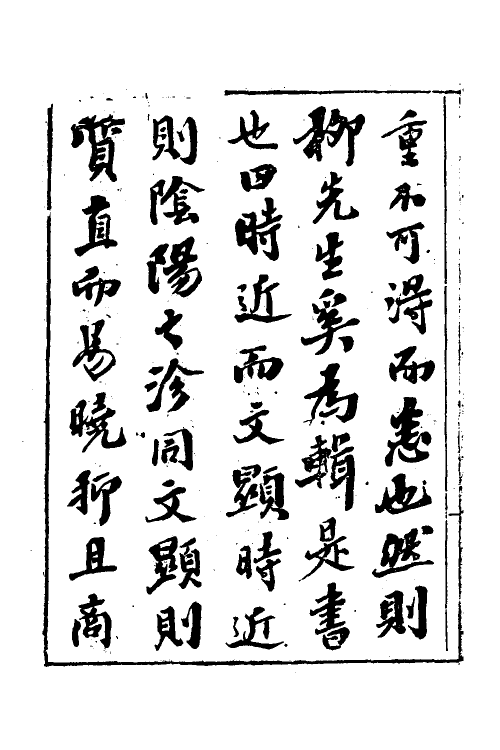 重不可得而悉也然則
柳先生奚為輯是書
也曰時近而文顯時近
則陰陽之沴同文顯則
質直而易曉抑且商